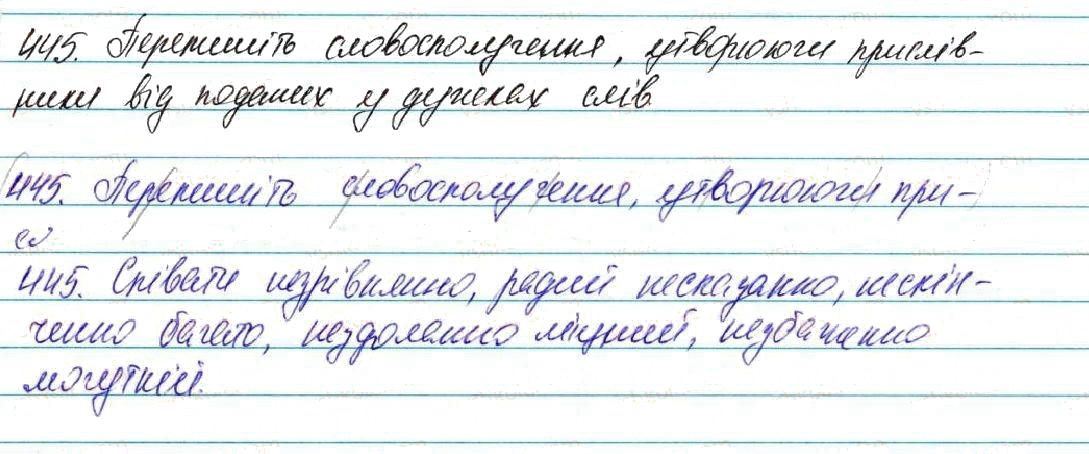 445. Перепишіть словосполучення, утворюючи прислів-
ники від поданих у дужках слів.
445. Перепишіть словосполучення, утворюючи при-
сл
445. Співати незрівнянно, радий несказанно, нескін-
ченно багато, нездоланно міцний, незбагненно
могутній.